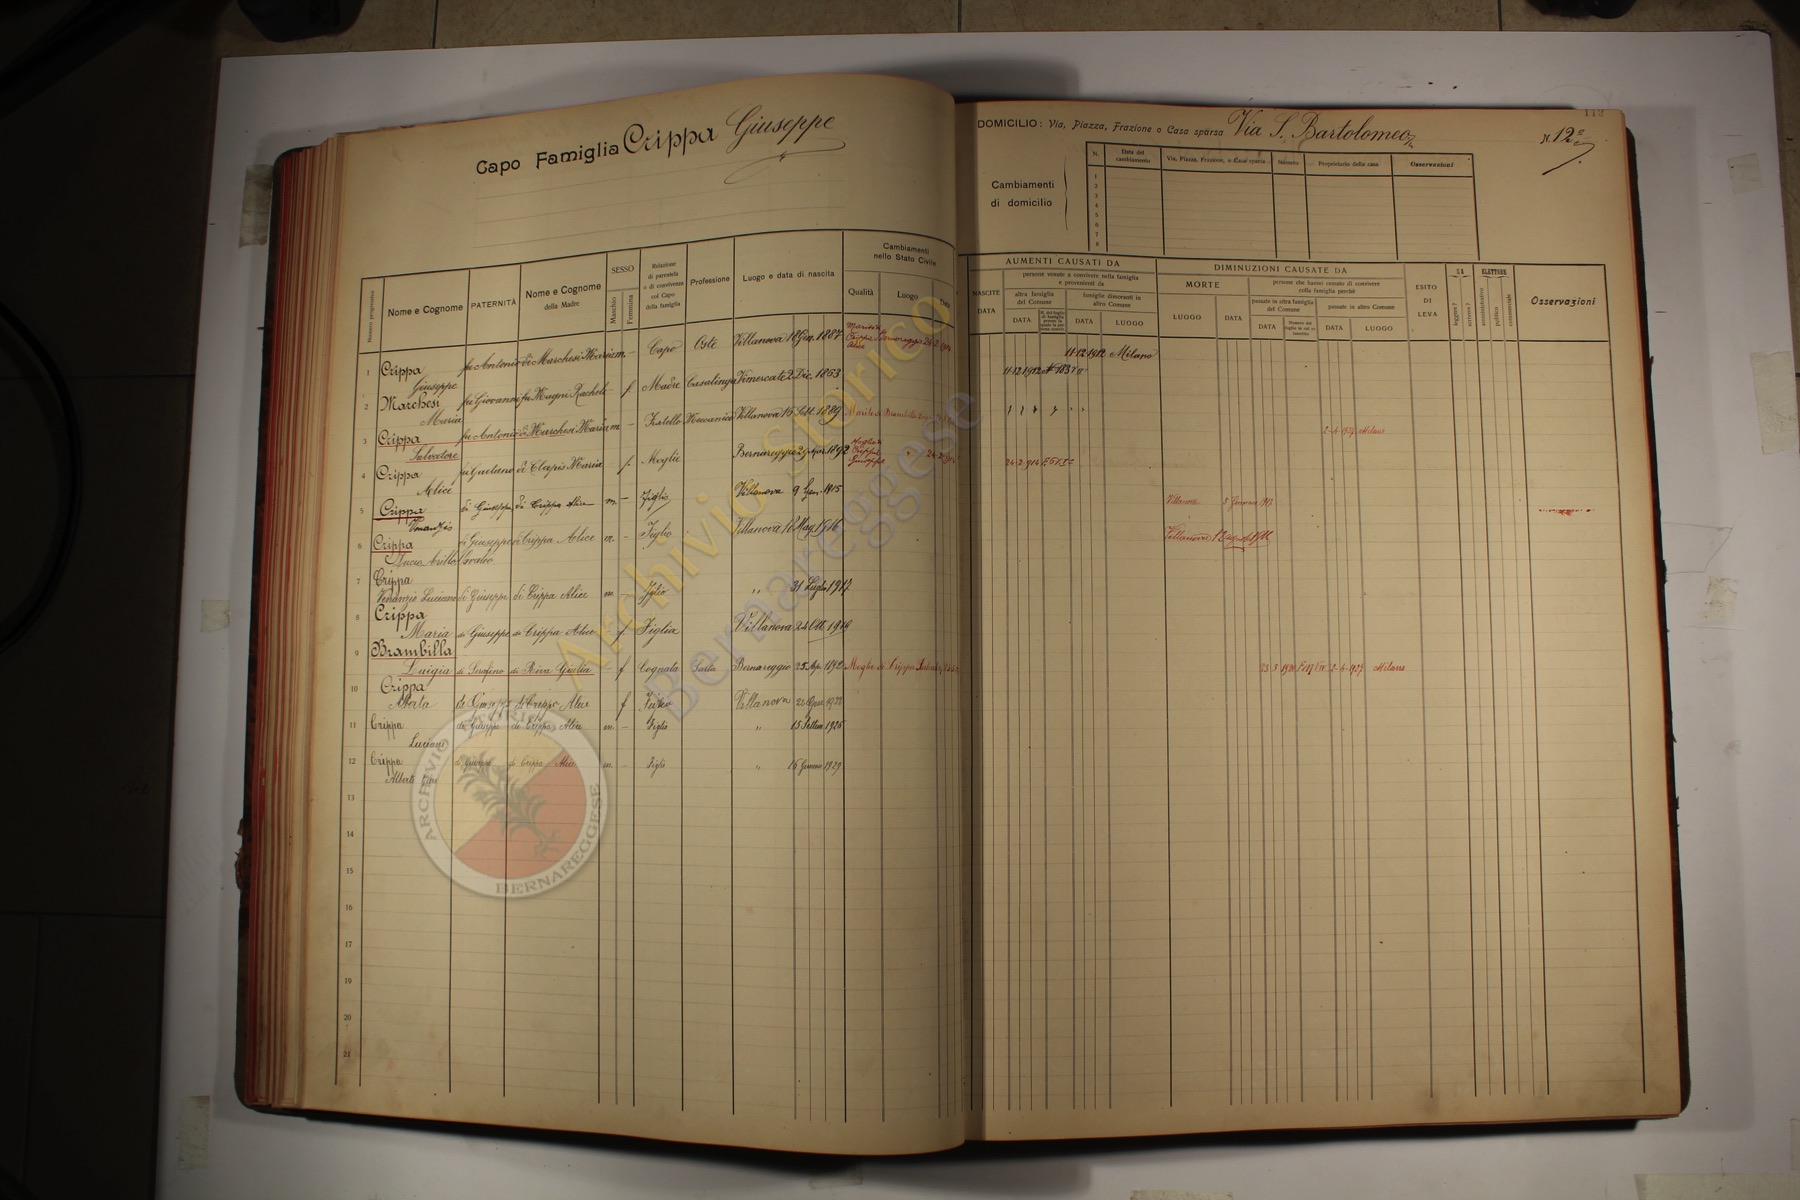 Capo Famiglia Crippa Giuseppe
DOMICILIO: Via, Piazza, Frazione o Casa sparsa Via S. Bartolomeo
N. 12
Cambiamenti
di domicilio
N. Data del cambiamento Via, Piazza, Frazione, o Casa sparsa Numero Proprietario della casa Osservazioni
1
2
3
4
5
6
7
8
Numero progressivo
Nome e Cognome
PATERNITÀ
Nome e Cognome
della Madre
SESSO
Maschio
Femmina
Relazione
di parentela
o di convivenza
col Capo
della famiglia
Professione
Luogo e data di nascita
Cambiamenti
nello Stato Civile
Qualità Luogo Data
AUMENTI CAUSATI DA
NASCITE
DATA
persone venute a convivere nella famiglia
e provenienti da
altra famiglia
del Comune
famiglie dimoranti in
altro Comune
DATA
DATA LUOGO
DIMINUZIONI CAUSATE DA
MORTE
LUOGO DATA
persone che hanno cessato di convivere
colla famiglia perchè
passate in altra famiglia
del Comune
passate in altro Comune
DATA
DATA LUOGO
ESITO
DI
LEVA
SA
leggere?
scrivere?
ELETTORE
amministrativo
politico
commerciale
Osservazioni
1 Crippa Giuseppe fu Antonio di Marchesi Maria m. – Capo Oste Villanova 18 Gen. 1887 Marito di Crippa Alice Bernareggio 11-12 1912 Milano
2 Marchesi Maria fu Giovanni fu Magni Rachele f Madre Casalinga Vimercate 2 Dic. 1853 11-12 1912
3 Crippa Salvatore fu Antonio di Marchesi Maria m – Fratello Meccanico Villanova 16 Sett. 1889 Marito di Brambilla 2-4-1927 Milano
4 Crippa Alice fu Gaetano di Clapis Maria f. Moglie Bernareggio 1892 Moglie di Crippa Giuseppe 24-2-1914
5 Crippa Venanzio di Giuseppe di Crippa Alice m – Figlio Villanova 9 Gen. 1915 Villanova 5 Gennaio 1917
6 Crippa di Giuseppe di Crippa Alice m. – Figlio Villanova 18 Mag. 1916 Villanova
7 Crippa Venanzio Luciano di Giuseppe di Crippa Alice m – Figlio " 31 Luglio 1917
8 Crippa Maria di Giuseppe di Crippa Alice f Figlia Villanova 24 Ott. 1919
9 Brambilla Luigia di Serafino di Riva Giulia – f Cognata Sarta Bernareggio 25 Ap. 1892 Moglie di Crippa 2-4-1927 Milano
10 Crippa Alberta di Giuseppe di Crippa Alice f Villanova 1922
11 Crippa Luciano di Giuseppe di Crippa Alice m. – Figlio " 15 Settem. 1926
12 Crippa di Giuseppe di Crippa Alice m. – Figlio " 16 1929
13
14
15
16
17
18
19
20
21
Archivio Storico
Bernareggese
ARCHIVIO STORICO
BERNAREGGESE